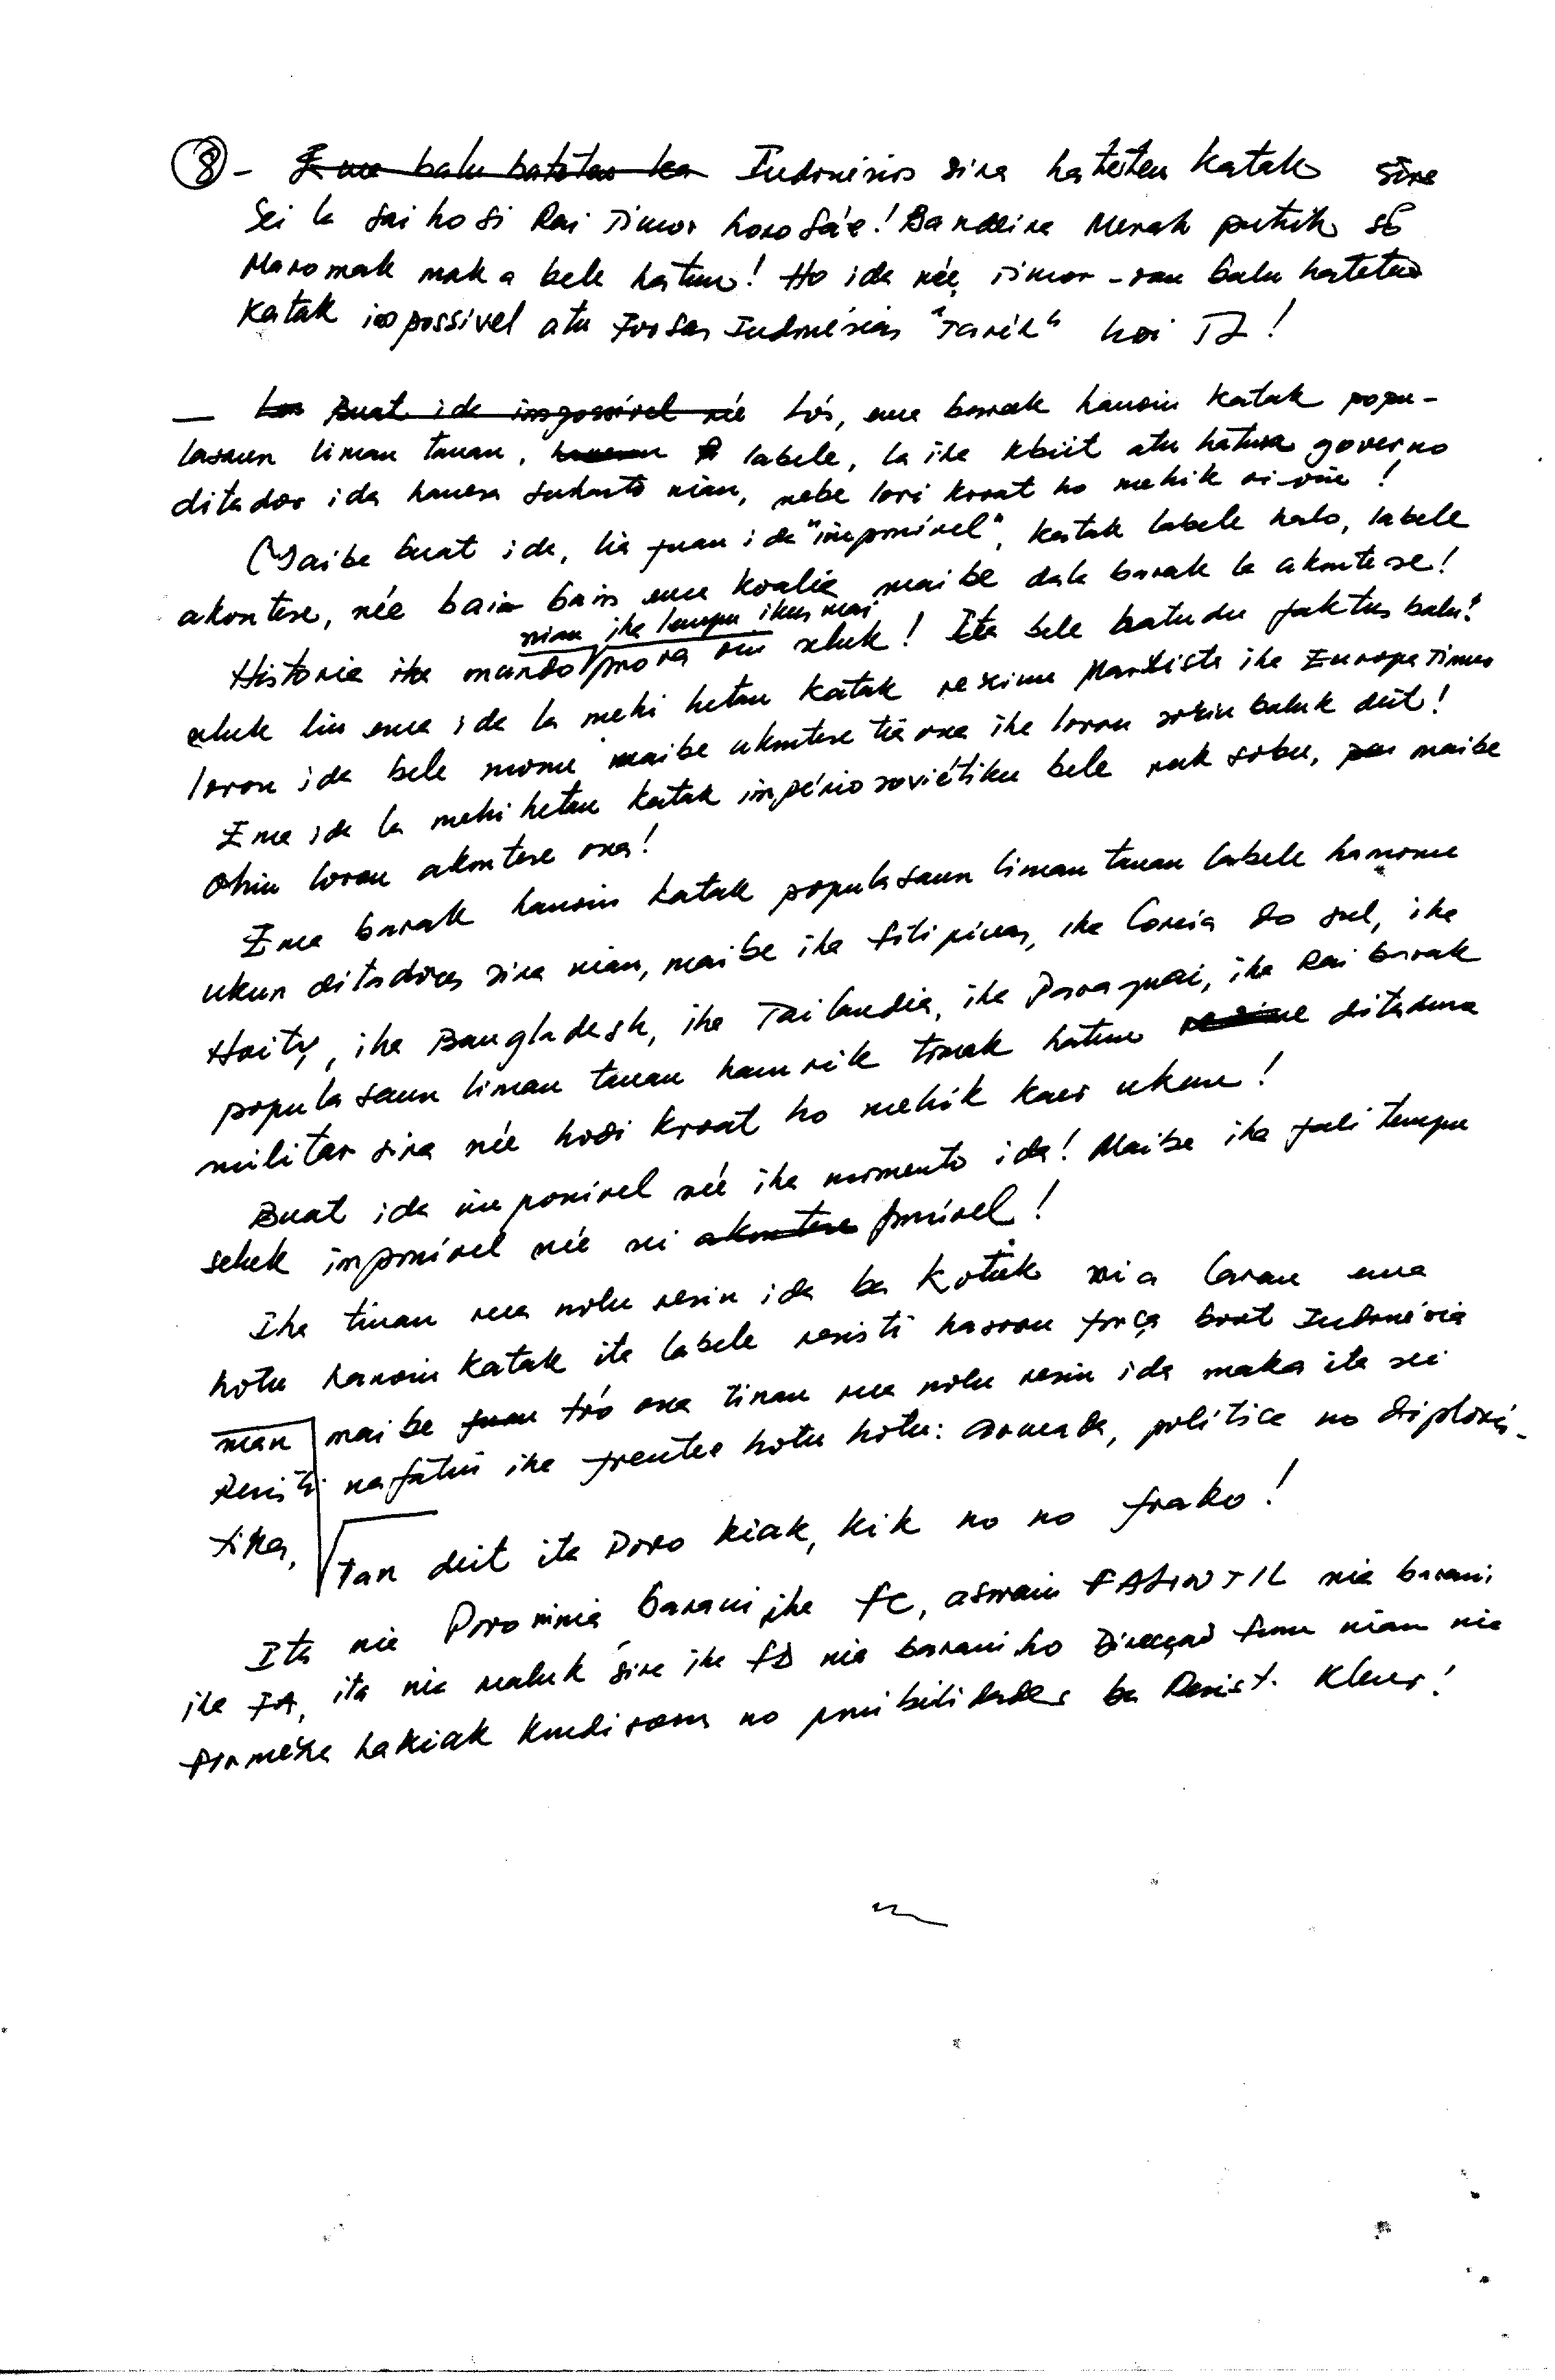 8 - Ema balu hateten ka Indonésios sira hateten katak sira
Sei la sai hosi Rai Timor horosa'e! Bandeira Merah putih só
Maromak mak a bele hatun! Ho ida née, Timor-oan balu hateten
katak impossivel atu forsas Indonésias "Tarik" hosi TL!
— Los Buat ida impossível née Lós, ema barak hanoin katak popu-
lasaun liman tanan, labele, la iha kbiit atu hatura governo
ditador ida hanesa Suharto nian, nebe lori kroat ho mehik oi-oin!
Maibe buat ida, lia fuan ida "impossível", katak labele halo, labele
akontese, née bain bain ema koalia maibe dala barak la akontese!
nian iha tempu ikus mai
Historia iha mundo prova oin seluk! Ita bele hatudu faktus balu:
uluk liu ema ida la mehi hetan katak rezime Marxista iha Europa Timur
loron ida bele monu maibe akontese tia ona iha loron sorin baluk deit!
Ema ida la mehi hetan katak império soviétiku bele nak sobu, maibe
Ohin loron akontese ona!
Ema barak hanoin katak populasaun liman tanan labele hamonu
ukun ditadores sira nian, maibe iha Filipinas, iha Coreia do Sul, iha
Haity, iha Bangladesh, iha Tailandia, iha Paraguai, iha Rai barak
populasaun liman tanan hamrik tomak hatun rezime ditadura
militar sira née hosi kroat ho mehik kaer ukun!
Buat ida impossivel née iha momento ida! Maibe iha fali tempu
seluk impossível née sei akontese possível!
Iha tinan rua nolu resin ida ba kotuk nia laran ema
hotu hanoin katak ita labele resisti hasoru força boot Indonésia
nian maibe to'o ona tinan rua nolu resin ida maka ita sei
Resisti nafatin iha frentes hotu hotu: armada, política no diplomá-
tika,
Tan deit ita Povo kiak, kik no no frako!
Ita nia Povo ninia barani iha FC, aswain FALINTIL nia barani
iha FA, ita nia maluk sira iha FD nia barani ho Direcçaõ funu nian nia
hakiak kondisoens no posibilidades ba Resist. kleur!